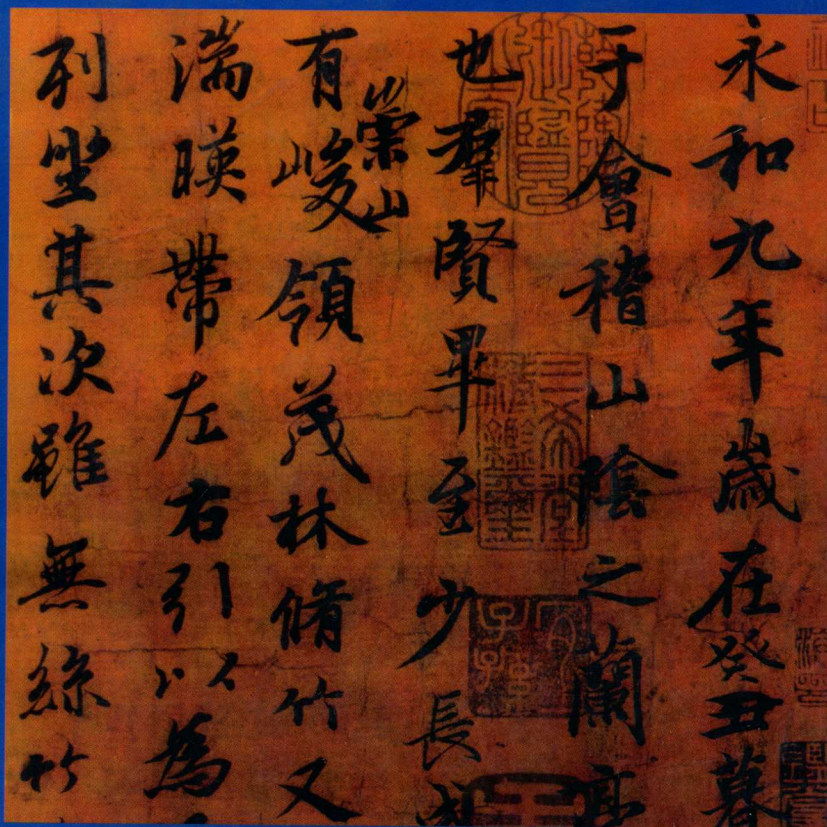 永和九年歲在癸丑暮
于會稽山陰之蘭亭
也羣賢畢至少長咸
有崇山峻領茂林脩竹又
湍暎帶左右引以為
列坐其次雖無絲竹
三希堂精鑑璽
宜子孫